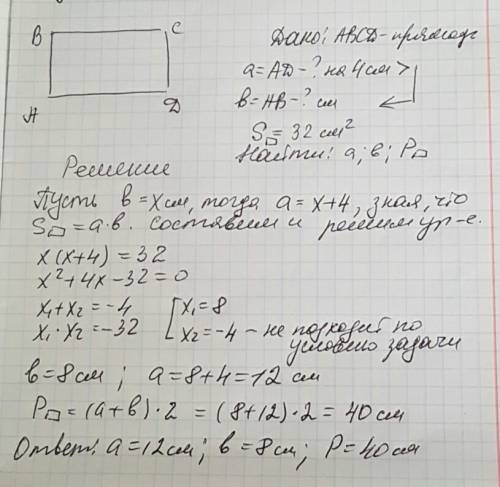 B C
A D
Дано: ABCD-прямоуг
a=AD-? на 4см >
в=AB-? см
S▭=32 см²
Найти: a; в; P▭
Решение
Пусть в=xсм, тогда a=x+4, зная, что
S▭=a·в. составим и решим ур-е.
x(x+4)=32
x²+4x-32=0
x₁+x₂=-4 [x₁=8
x₁·x₂=-32 [x₂=-4 - не подходит по
условию задачи
в=8см; a=8+4=12 см
P▭=(a+в)·2=(8+12)·2=40см
Ответ: a=12см; в=8см; P=40см